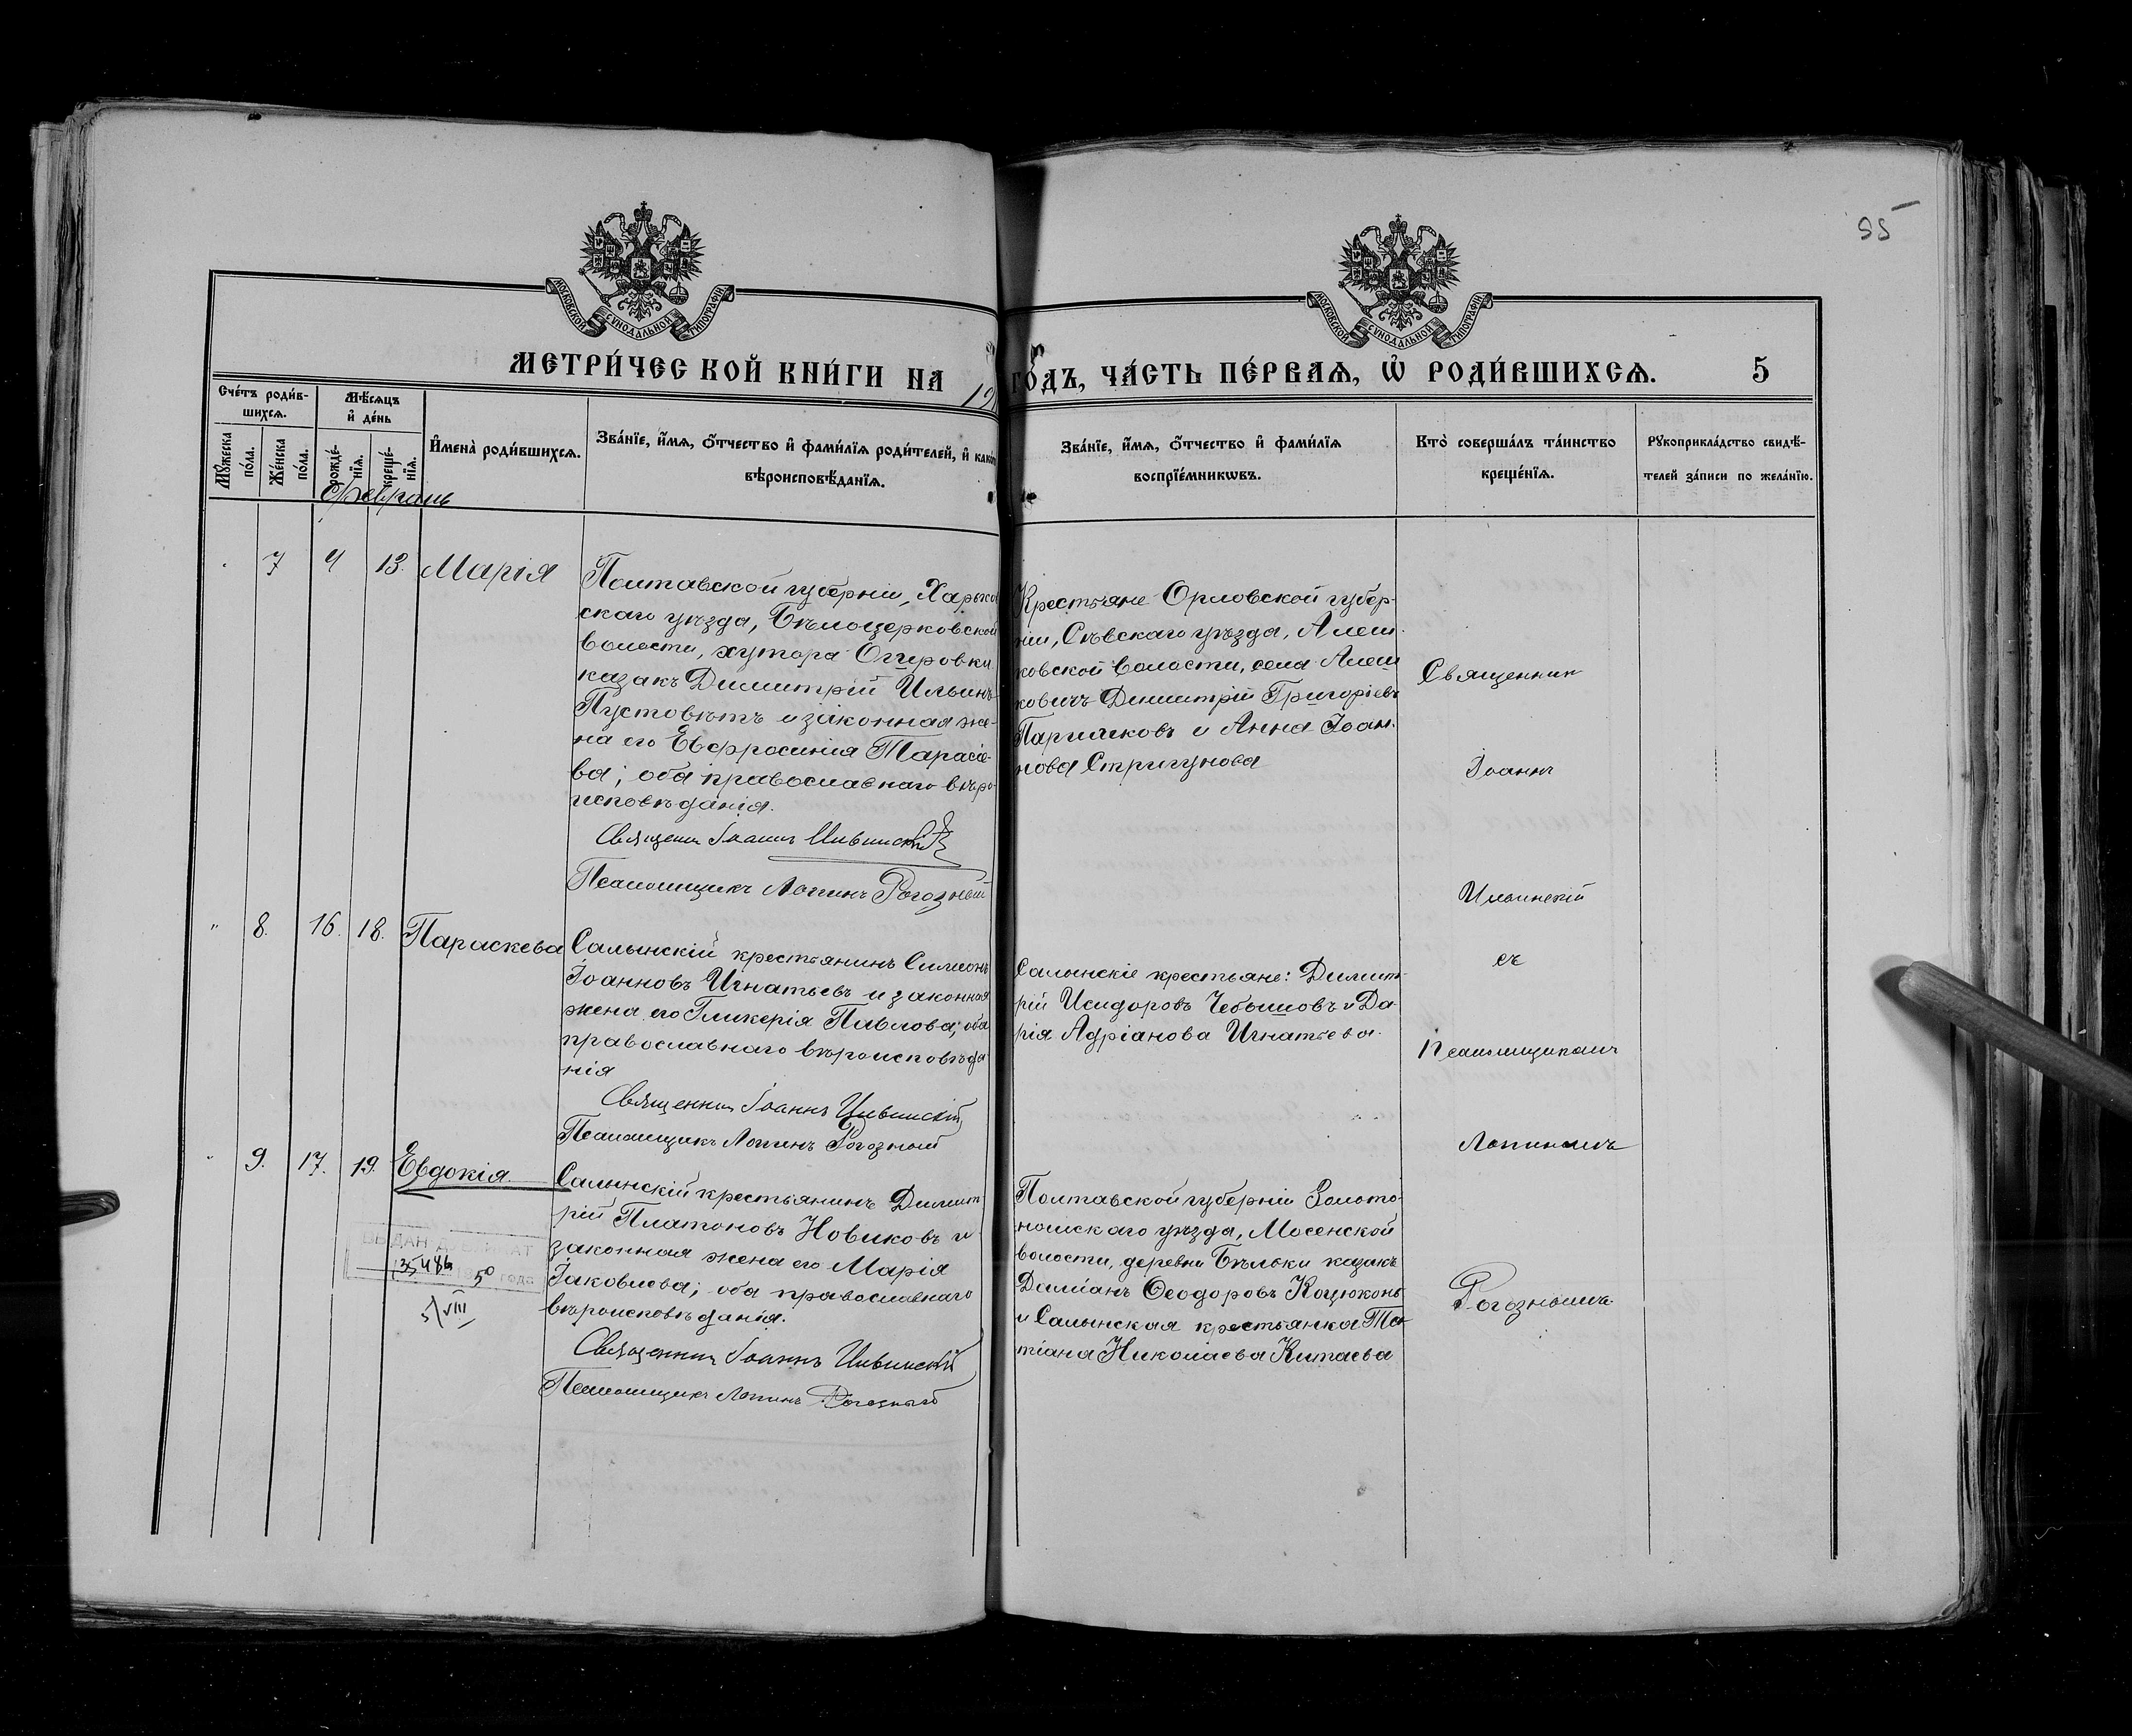 55
МОСКОВСКОЙ СѴНОДАЛЬНОЙ ТИПОГРАФІИ
МОСКОВСКОЙ СѴНОДАЛЬНОЙ ТИПОГРАФІИ
МЕТРИ́ЧЕСКОЙ КНИ́ГИ НА 19
ГО́ДЪ, ЧА́СТЬ ПЕ́РВАѦ, Ѡ҆ РОДИ́ВШИХСѦ. 5
Сче́тъ роди́в-
шихсѧ.
Мꙋ́жеска по́ла.
Же́нска по́ла.
Мѣ́сѧцъ
и҆ де́нь
рожде́-
нїѧ.
креще́-
нїѧ.
И҆мена̀ роди́вшихсѧ.
Зва́нїе, и҆́мѧ, ѻ҆́тчество и҆ фами́лїѧ роди́телей, и҆ како
вѣроисповѣ́данїѧ.
Зва́нїе, и҆́мѧ, ѻ҆́тчество и҆ фами́лїѧ
воспрїе́мникѡвъ.
Кто̀ соверша́лъ та́инство
креще́нїѧ.
Рꙋкоприкла́дство свидѣ́-
телей за́писи по жела́нїю.
Февраль
7 9 13. Марія
Полтавской губерніи, Харьков
скаго уѣзда, Бѣлоцерковской
волости, хутора
казакъ Димитрій Ильинъ
Пустовѣтъ и законная же-
на его Евфросинія Тарасіе-
ва; оба православнаго вѣро-
исповѣданія.
Священн Іоаннъ
Псаломщикъ Логинъ Рогозный
Крестьяне Орловской губер-
ніи, Сѣвскаго уѣзда, Алеш-
ковской волости, села Алеш
ковичъ Димитрій Григоріевъ
и Анна Іоан-
нова Стригунова
Священник
Іоаннъ
съ
Псаломщикомъ
Логиномъ
Рогознымъ
" 8. 16. 18. Параскева
Салынскій крестьянинъ Симеонъ
Іоанновъ Игнатьевъ и законная
жена его Гликерія Павлова; оба
православнаго вѣроисповѣда
нія
Священник Іоаннъ
Псаломщикъ Логинъ Рогозный
Салынскіе крестьяне: Димит-
рій Исидоровъ и Да-
рія Адріанова Игнатьева.
" 9. 17. 19. Евдокія.
Салынскій крестьянинъ Димит
рій Платоновъ Новиковъ и
законная жена его Марія
Іаковлева; оба православнаго
вѣроисповѣданія.
Священник Іоаннъ
Псаломщикъ Логинъ Рогозный
Полтавской губерніи Золото-
ношскаго уѣзда,
волости, деревни Бѣльки казакъ
Даміанъ Ѳеодоровъ
и Салынская крестьянка Та-
тіана Николаева Китаева
ВЫДАН ДУБЛИКАТ
50 года
5/VIII